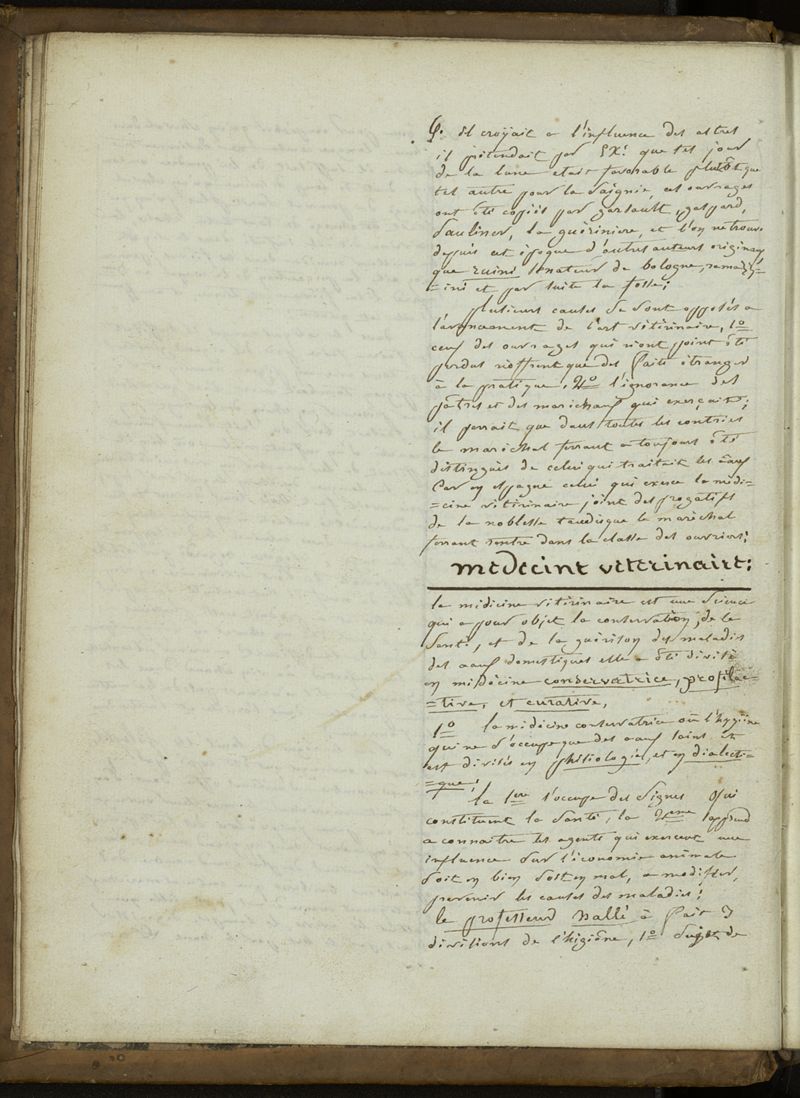 il croÿait a l'influence des astres
il prétendait par EX! que tel jour
de la lune etait favorable plutôt que
tel autre pour la saignie, cet ouvrages
ont été copiés par garsault, gaspard,
Saulinier, la guériniere, et l'on ne trouve
depuis cet époque d'autres auteurs originaux
que ruini senateur de bologne, ramazzi=
=ini et par suite la fosse;
plusieurs causes se sont opposés a
l'avancement de l'art vétérinaire, 1o
ceux des ouvrages qui n'ont point été
perdus n'offrent que des faits étranger
à la pratique, 2o l'ignorance des
pâtres et des maréchaux qui exerçaient;
il parrait que dans toutes les contries
le maréchal ferrant a toujours été
distingués de celui qui traitait les aaux
Car en espagne celui qui exerce la médi=
=cine vétérinaire joint des progatifs
de la noblesse tandisque le maréchal
ferrant rentre dans la classe des ouvriers;
medecine veterinaire;
la médicine vétérinaire est une science
qui a pour objet la conservation, de la
santé, et de la guérison des maladies
des aaux domestiques elle a été divisée
en médécine conservatrice, profilac=
=tive, et curative,
1o la médicine conservatrice ou l'hygiene
qui ne s'occupe que des aaux sains et
est divisés en phisiologie, et en dialecti=
=que;
la 1ere s'occupe des signes qui
constituent la santé, la 2eme apprend
a connaitre les agents qui exercent une
influence sur l'économie animale
soit en bien soit en mal, a modifier,
prevenir les causes des maladies;
le professeur hallé à fait 3
divisions de l'higiêne, 1o sujet de